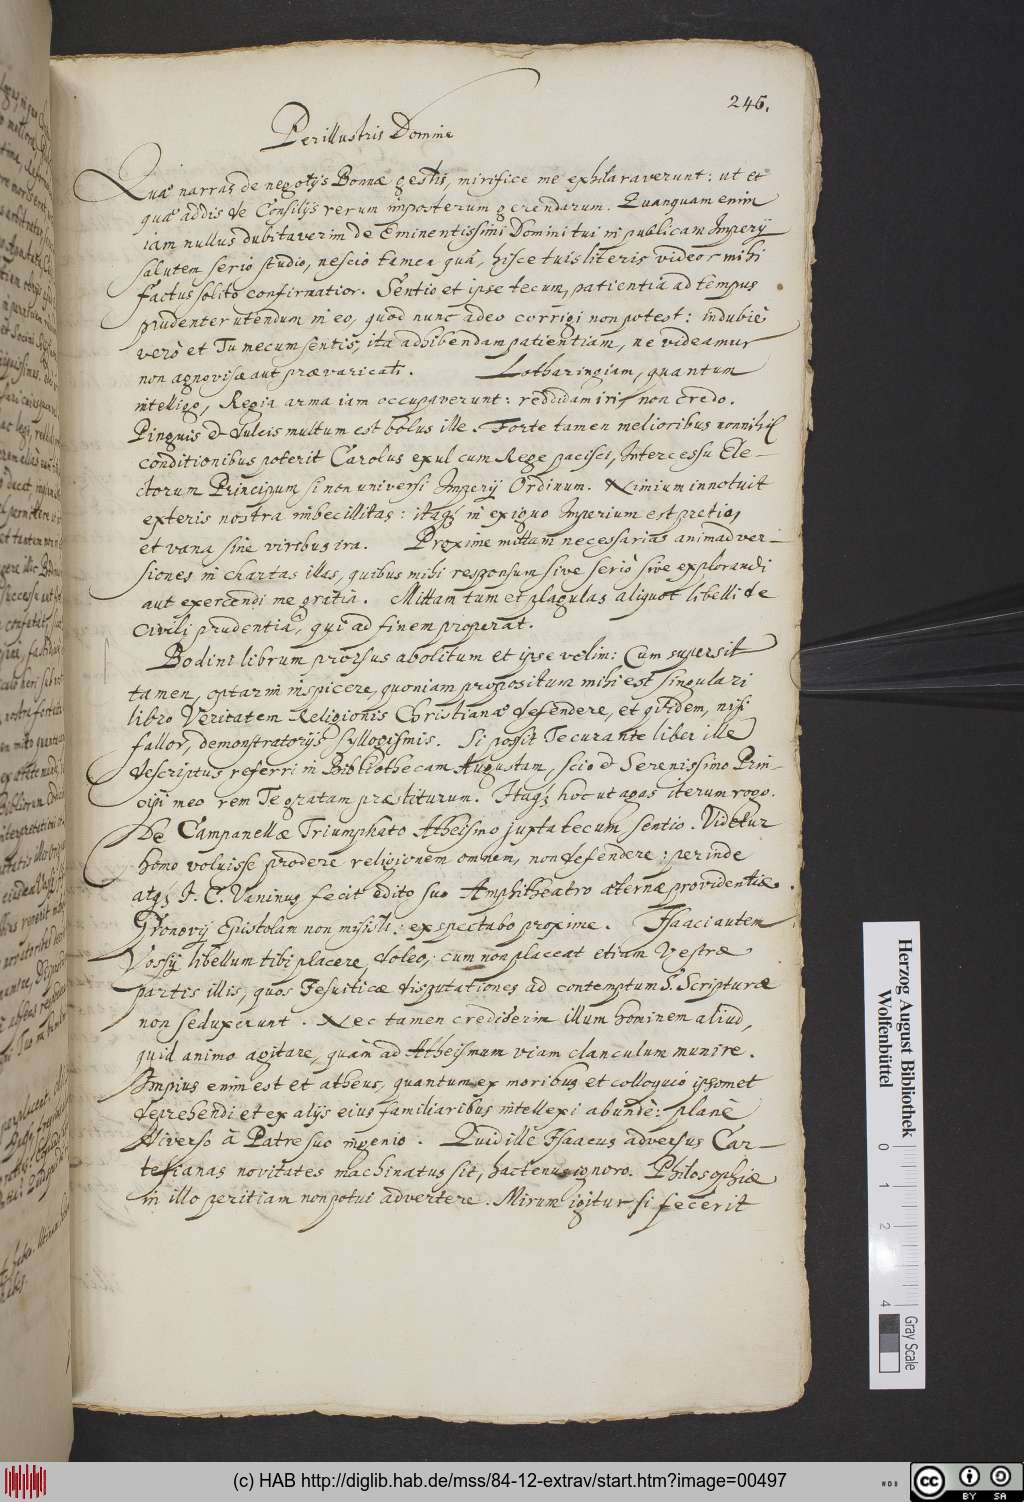 246.
Perillustris Domine
Quae narras de negotijs Bonnae gestis, mirifice me exhilaraverunt: ut et
quae addis de Consilijs rerum imposterum gerendarum. Quanquam enim
iam nullus dubitaverim de Eminentissimi Domini tui in publicam Imperij
salutem serio studio, nescio tamen quâ, hisce tuis literis videor mihi
factus solito confirmatior. Sentio et ipse tecum, patientiâ ad tempus
prudenter utendum in eo, quod nunc adeo corrigi non potest: indubiè
verò et Tu mecum sentis, ita adhibendam patientiam, ne videamur
non agnovisse aut praevaricati. Lotharingiam, quantum
intelligo, Regia arma iam occupaverunt: reddidam iri non credo.
Pinguis & dulcis multum est bolus ille. Forte tamen melioribus nonnihil
conditionibus poterit Carolus exul cum Rege pacisci, Intercessu Ele-
ctorum Principum si non universi Imperij Ordinum. Nimium innotuit
exteris nostra imbecillitas: itaq; in exiguo Imperium est pretio,
et vana sine viribus ira. Proxime mittam necessarias animadver-
siones in chartas illas, quibus mihi responsum sive serio sive explorandi
aut exercendi me gratiâ. Mittam tum et plagulas aliquot libelli de
Civili prudentiâ, qui ad finem properat.
Bodini librum prorsus abolitum et ipse velim: Cum supersit
tamen, optarim inspicere, quoniam propositum mihi est singulari
libro Veritatem Religionis Christianae defendere, et quidem, nisi
fallor, demonstratorijs syllogismis. Si possit Te curante liber ille
descriptus referri in Bibliothecam Augustam, scio & Serenissimo Prin-
cipi meo rem Te gratam praestiturum. Itaq; hoc ut agas iterum rogo.
De Campanellae Triumphato Atheismo juxta tecum sentio. Videtur
homo voluisse prodere religionem omnem, non defendere: perinde
atq; J. C. Vaninus fecit edito suo Amphitheatro aeternae providentiae.
Gronovij Epistolam non misisti: exspectabo proxime. Isaaci autem
Vossij libellum tibi placere, doleo, cum non placeat etiam Vestrae
partis illis, quos Jesuiticae disputationes ad contemptum S. Scripturae
non seduxerunt. Nec tamen crediderim illum hominem aliud,
quid animo agitare, quàm ad Atheismum viam clanculum munire.
Impius enim est et atheus, quantum ex moribus et colloquio ipsomet
deprehendi et ex alijs eius familiaribus intellexi abundè: planè
diverso à Patre suo ingenio. Quid ille Isaacus adversus Car-
tesianas novitates machinatus sit, hactenus ignoro. Philosophiae
in illo peritiam non potui advertere. Mirum igitur si fecerit
Herzog August Bibliothek
Wolfenbüttel
0
1
2
4
Gray Scale
(c) HAB http://diglib.hab.de/mss/84-12-extrav/start.htm?image=00497
cc
BY SA